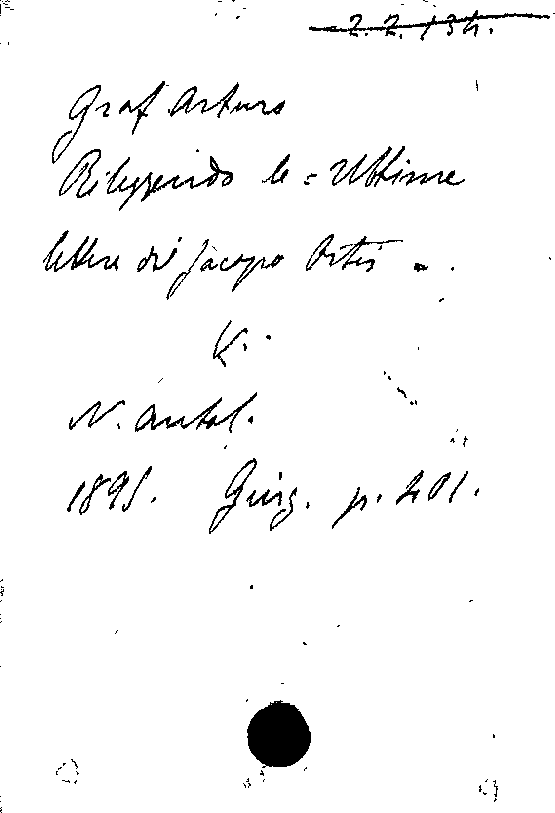 2.2.134.
Graf Arturo
Rileggendo le = Ultime
lettere di Jacopo Ortis = .
V. .
N. Antol.
1895. Giug. p. 401.